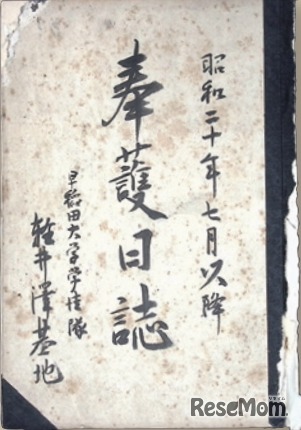 昭和二十年七月以降
奉護日誌
早稲田大学学徒隊
軽井澤基地
ReseMom.